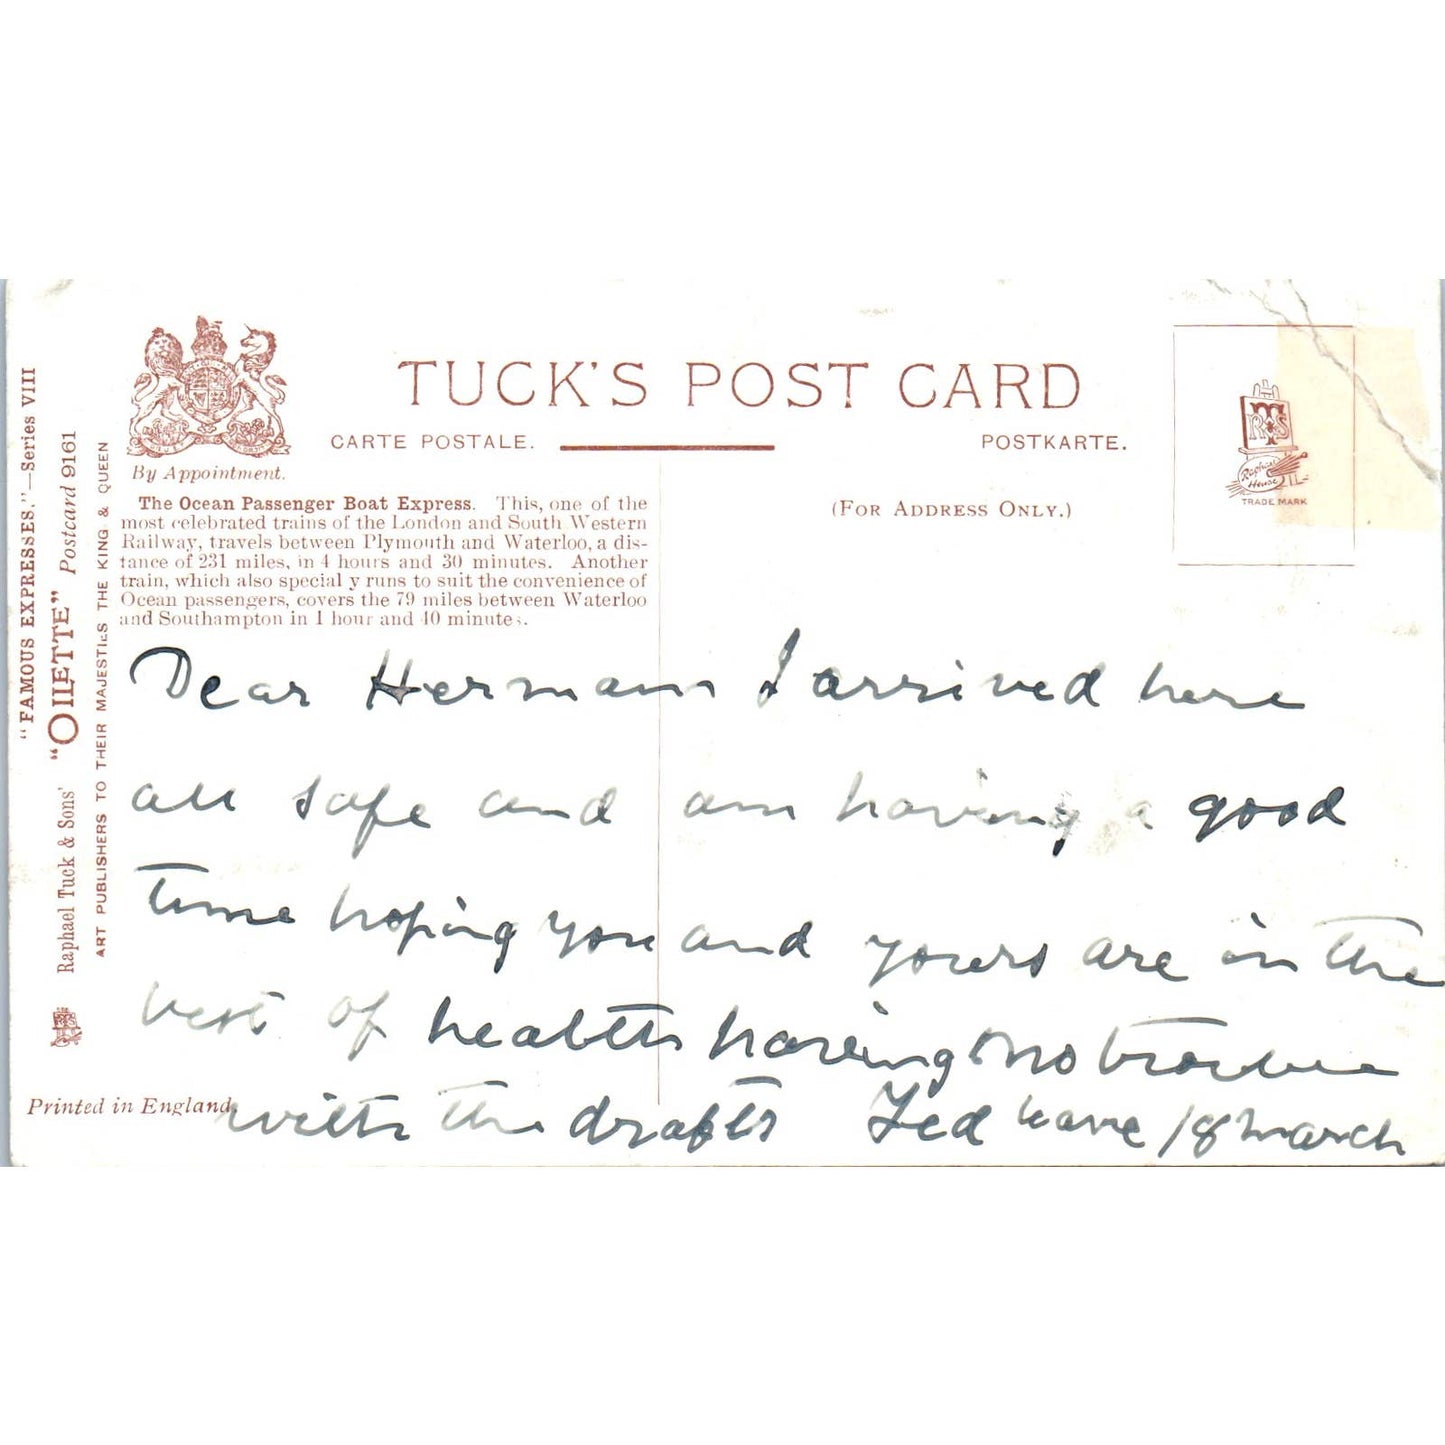 TUCK'S POST CARD
CARTE POSTALE.
POSTKARTE.
By Appointment.
(FOR ADDRESS ONLY.)
Raphael House
TRADE MARK
The Ocean Passenger Boat Express. This, one of the
most celebrated trains of the London and South Western
Railway, travels between Plymouth and Waterloo, a dis-
tance of 231 miles, in 4 hours and 30 minutes. Another
train, which also special y runs to suit the convenience of
Ocean passengers, covers the 79 miles between Waterloo
and Southampton in 1 hour and 40 minutes.
"FAMOUS EXPRESSES."—Series VIII
Raphael Tuck & Sons' "OILETTE" Postcard 9161
ART PUBLISHERS TO THEIR MAJESTIES THE KING & QUEEN
Dear Hermann I arrived here
all safe and am having a good
time hoping you and yours are in the
best of health having no trouble
with the drafts 18 March
Printed in England